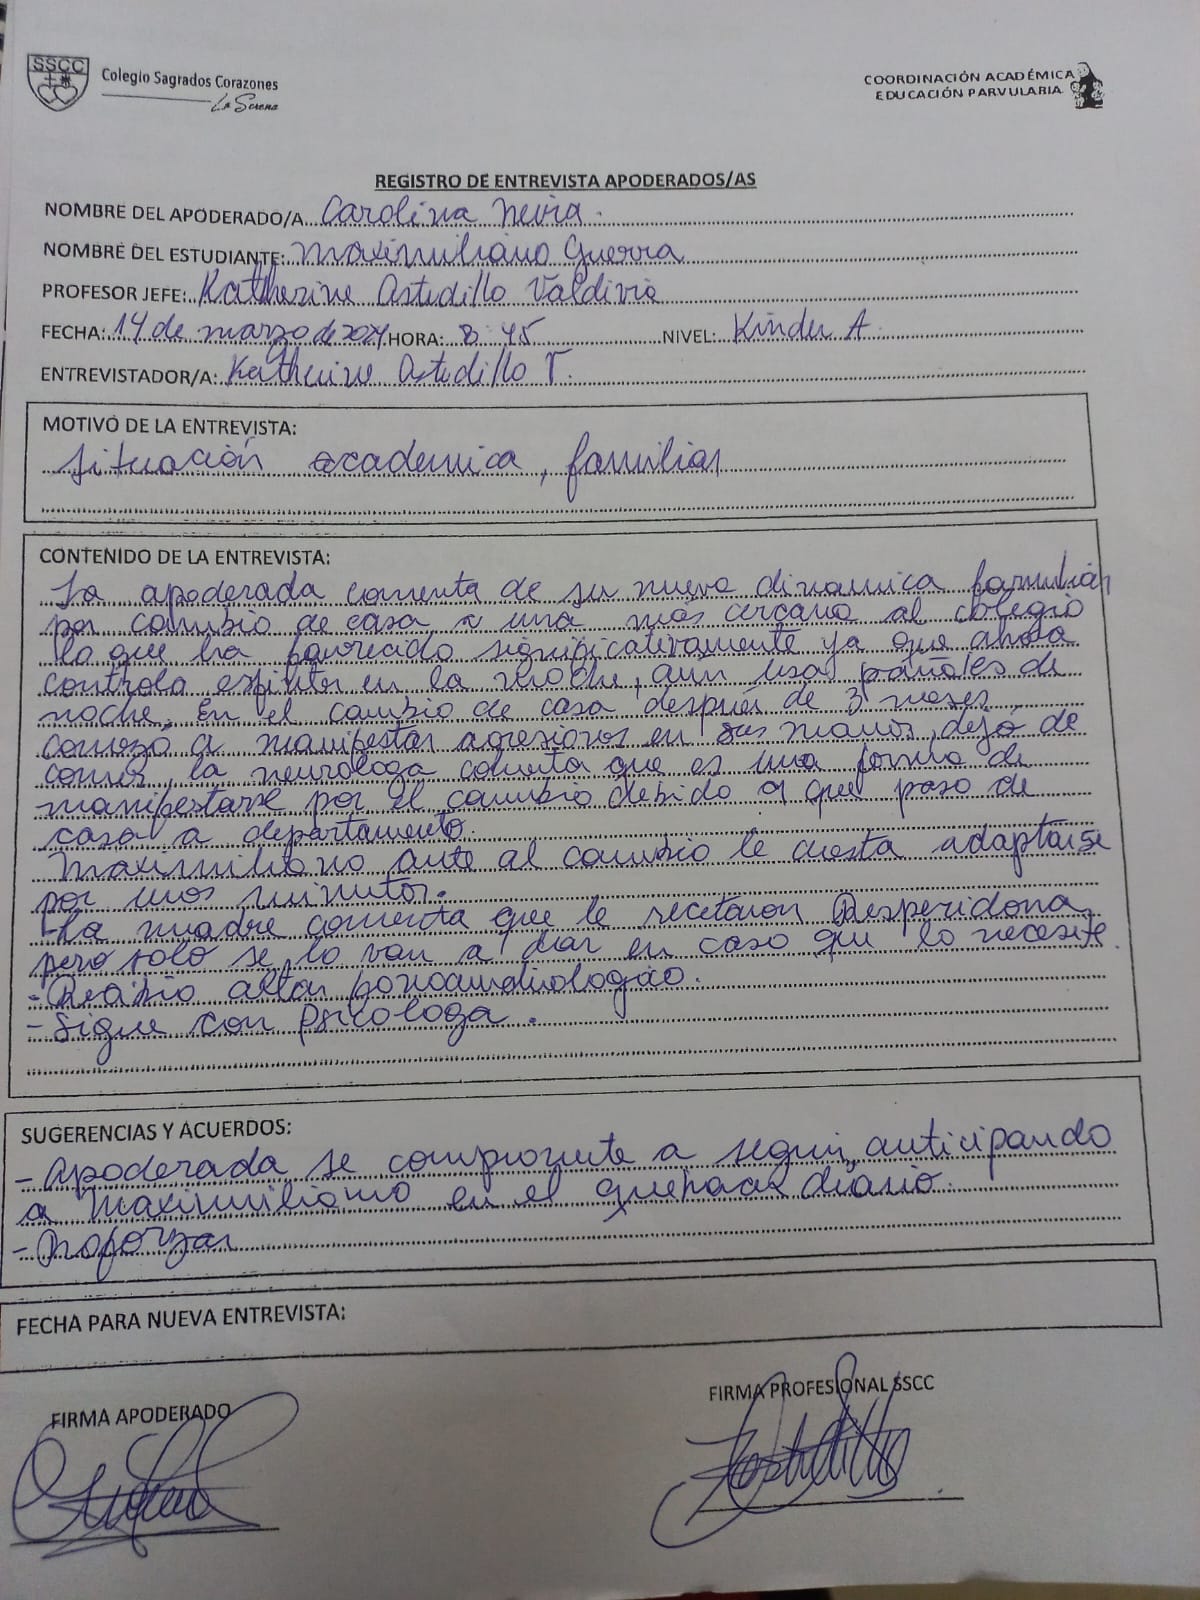 SSCC
Colegio Sagrados Corazones
La Serena
COORDINACIÓN ACADÉMICA
EDUCACIÓN PARVULARIA
REGISTRO DE ENTREVISTA APODERADOS/AS
NOMBRE DEL APODERADO/A Carolina Neira.
NOMBRE DEL ESTUDIANTE: Maximiliano Guerra
PROFESOR JEFE: Katherine Astudillo Valdivia
FECHA: 14 de marzo de 2024 HORA: 8:45 NIVEL: Kinder A.
ENTREVISTADOR/A: Katherine Astudillo V.
MOTIVO DE LA ENTREVISTA:
Situación academica, familiar
CONTENIDO DE LA ENTREVISTA:
La apoderada comenta de su nueva dinamica familiar
por cambio de casa a una más cercana al colegio
lo que ha favorecido significativamente ya que ahora
controla esfinter en la noche, aún usa pañales de
noche. En el cambio de casa después de 3 meses
comezó a manifestar agresiones en sus manos, dejó de
comer, la neuróloga comenta que es una forma de
manifestarse por el cambio debido a que paso de
casa a departamento.
Maximiliano ante al cambio le cuesta adaptarse
por unos minutos.
-La madre comenta que le recetaron Resperidona,
pero solo se lo van a dar en caso que lo necesite.
- alta fonoaudiologica.
- Sigue con psicologa.
SUGERENCIAS Y ACUERDOS:
- Apoderada se compromete a seguir anticipando
a Maximiliano en el quehacer diario.
- Reforzar
FECHA PARA NUEVA ENTREVISTA:
FIRMA APODERADO
FIRMA PROFESIONAL SSCC